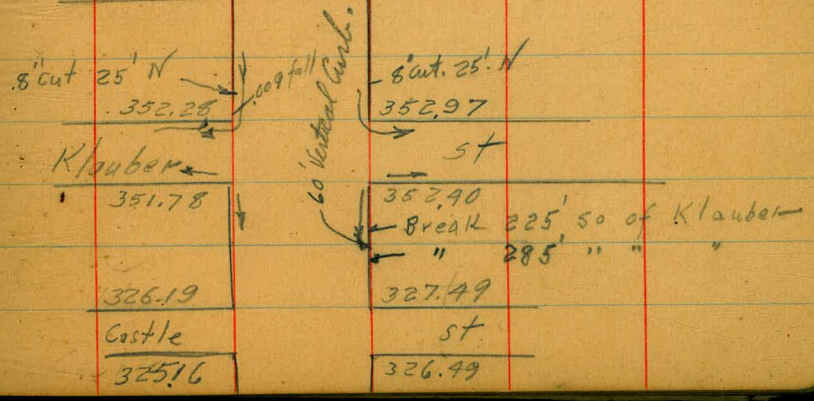 8" cut 25' N
.009 fall
60' Vertical Curb.
8" cut. 25' N
352.28
352.97
Klauber
st
351.78
352.40
Break 225' So of Klauber
" 285' " " "
326.19
327.49
Castle
st
325.16
326.49